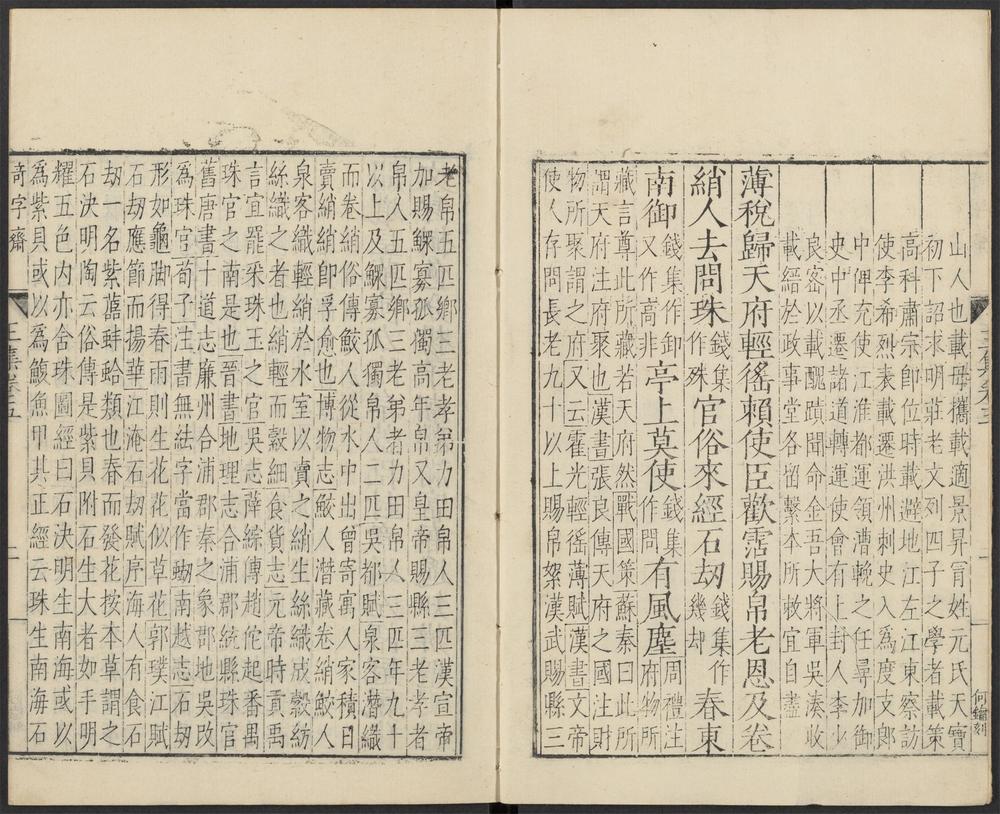 山人也載母攜載適景昇冐姓元氏天寶
初下詔求明莊老文列四子之學者載策
高科肅宗即位時載避地江左江東察訪
使李希烈表載遷洪州刺史入爲度支郎
中俾充使江淮都運領漕輓之任尋加御
史中丞遷諸道轉運使會有上封人李少
良宻以載醜蹟聞命金吾大將軍吳湊收
載縉於政事堂各畱繫本所敕宜自盡
薄稅歸天府輕徭賴使臣歡霑賜帛老恩及卷
綃人去問珠錢集作殊官俗來經石刧錢集作幾却春東
南御錢集作卸又作高非亭上莫使錢集作問有風塵周禮注府物所
藏言尊此所藏若天府然戰國策蘇秦曰此所
謂天府注府聚也漢書張良傳天府之國注財
物所聚謂之府又云霍光輕徭薄賦漢書文帝
使人存問長老九十以上賜帛絮漢武賜縣三
何鑰刻
老帛五匹鄉三老孝弟力田帛人三匹漢宣帝
加賜鰥寡孤獨高年帛又皇帝賜縣三老孝者
帛人五匹鄉三老弟者力田帛人三匹年九十
以上及鰥寡孤獨帛人二匹吳都賦泉客潛織
而卷綃俗傳鮫人從水中出曾寄寓人家積日
賣綃綃卽孚愈也博物志鮫人潛藏卷綃鮫人
泉客織輕綃於水室以賣之綃生絲織成縠紡
絲織之者也綃輕而縠細食貨志元帝時貢禹
言宜罷采珠玉之官吳志薛綜傳趙佗起番禺
珠官之南是也晉書地理志合浦郡統縣珠官
舊唐書十道志廉州合浦郡秦之象郡地吳改
爲珠官荀子注書無𧉧字當作蚴南越志石刧
形如龜脚得春雨則生花花似草花郭璞江賦
石刧應節而揚華江淹石刧賦序海人有食石
刧一名紫𧄤蚌蛤類也春而發花按本草謂之
石決明陶云俗傳是紫貝附石生大者如手明
耀五色内亦含珠圖經曰石決明生南海或以
爲紫貝或以爲鰒魚甲其正經云珠生南海石
竒字齋
王集卷五